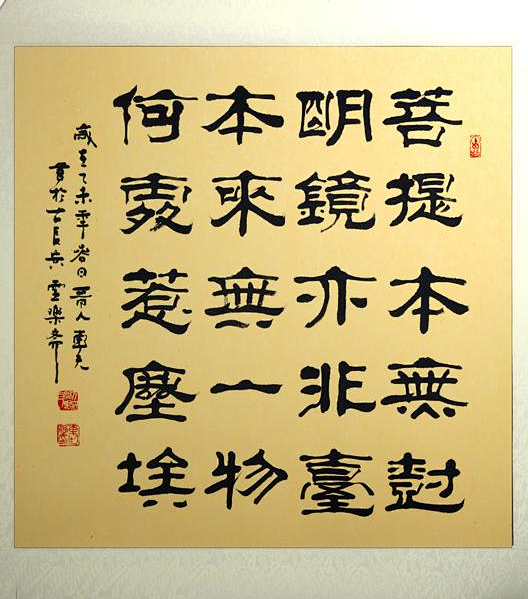 菩提本無尌
朙鏡亦非臺
本來無一物
何處惹塵埃
歲在乙未年春日晉人
書於古長安雲樂齋